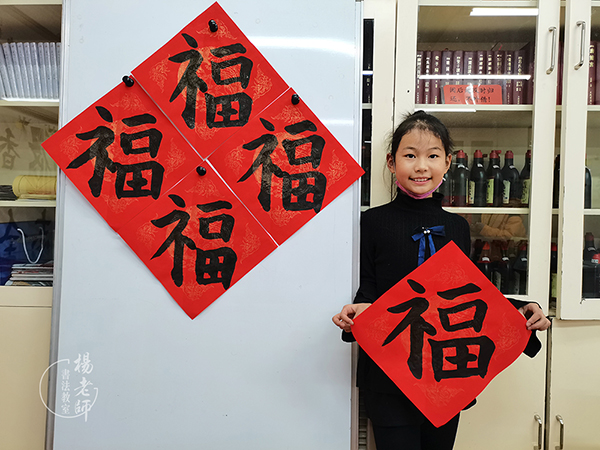 福
福
福
福
福
楊老師
書法教室